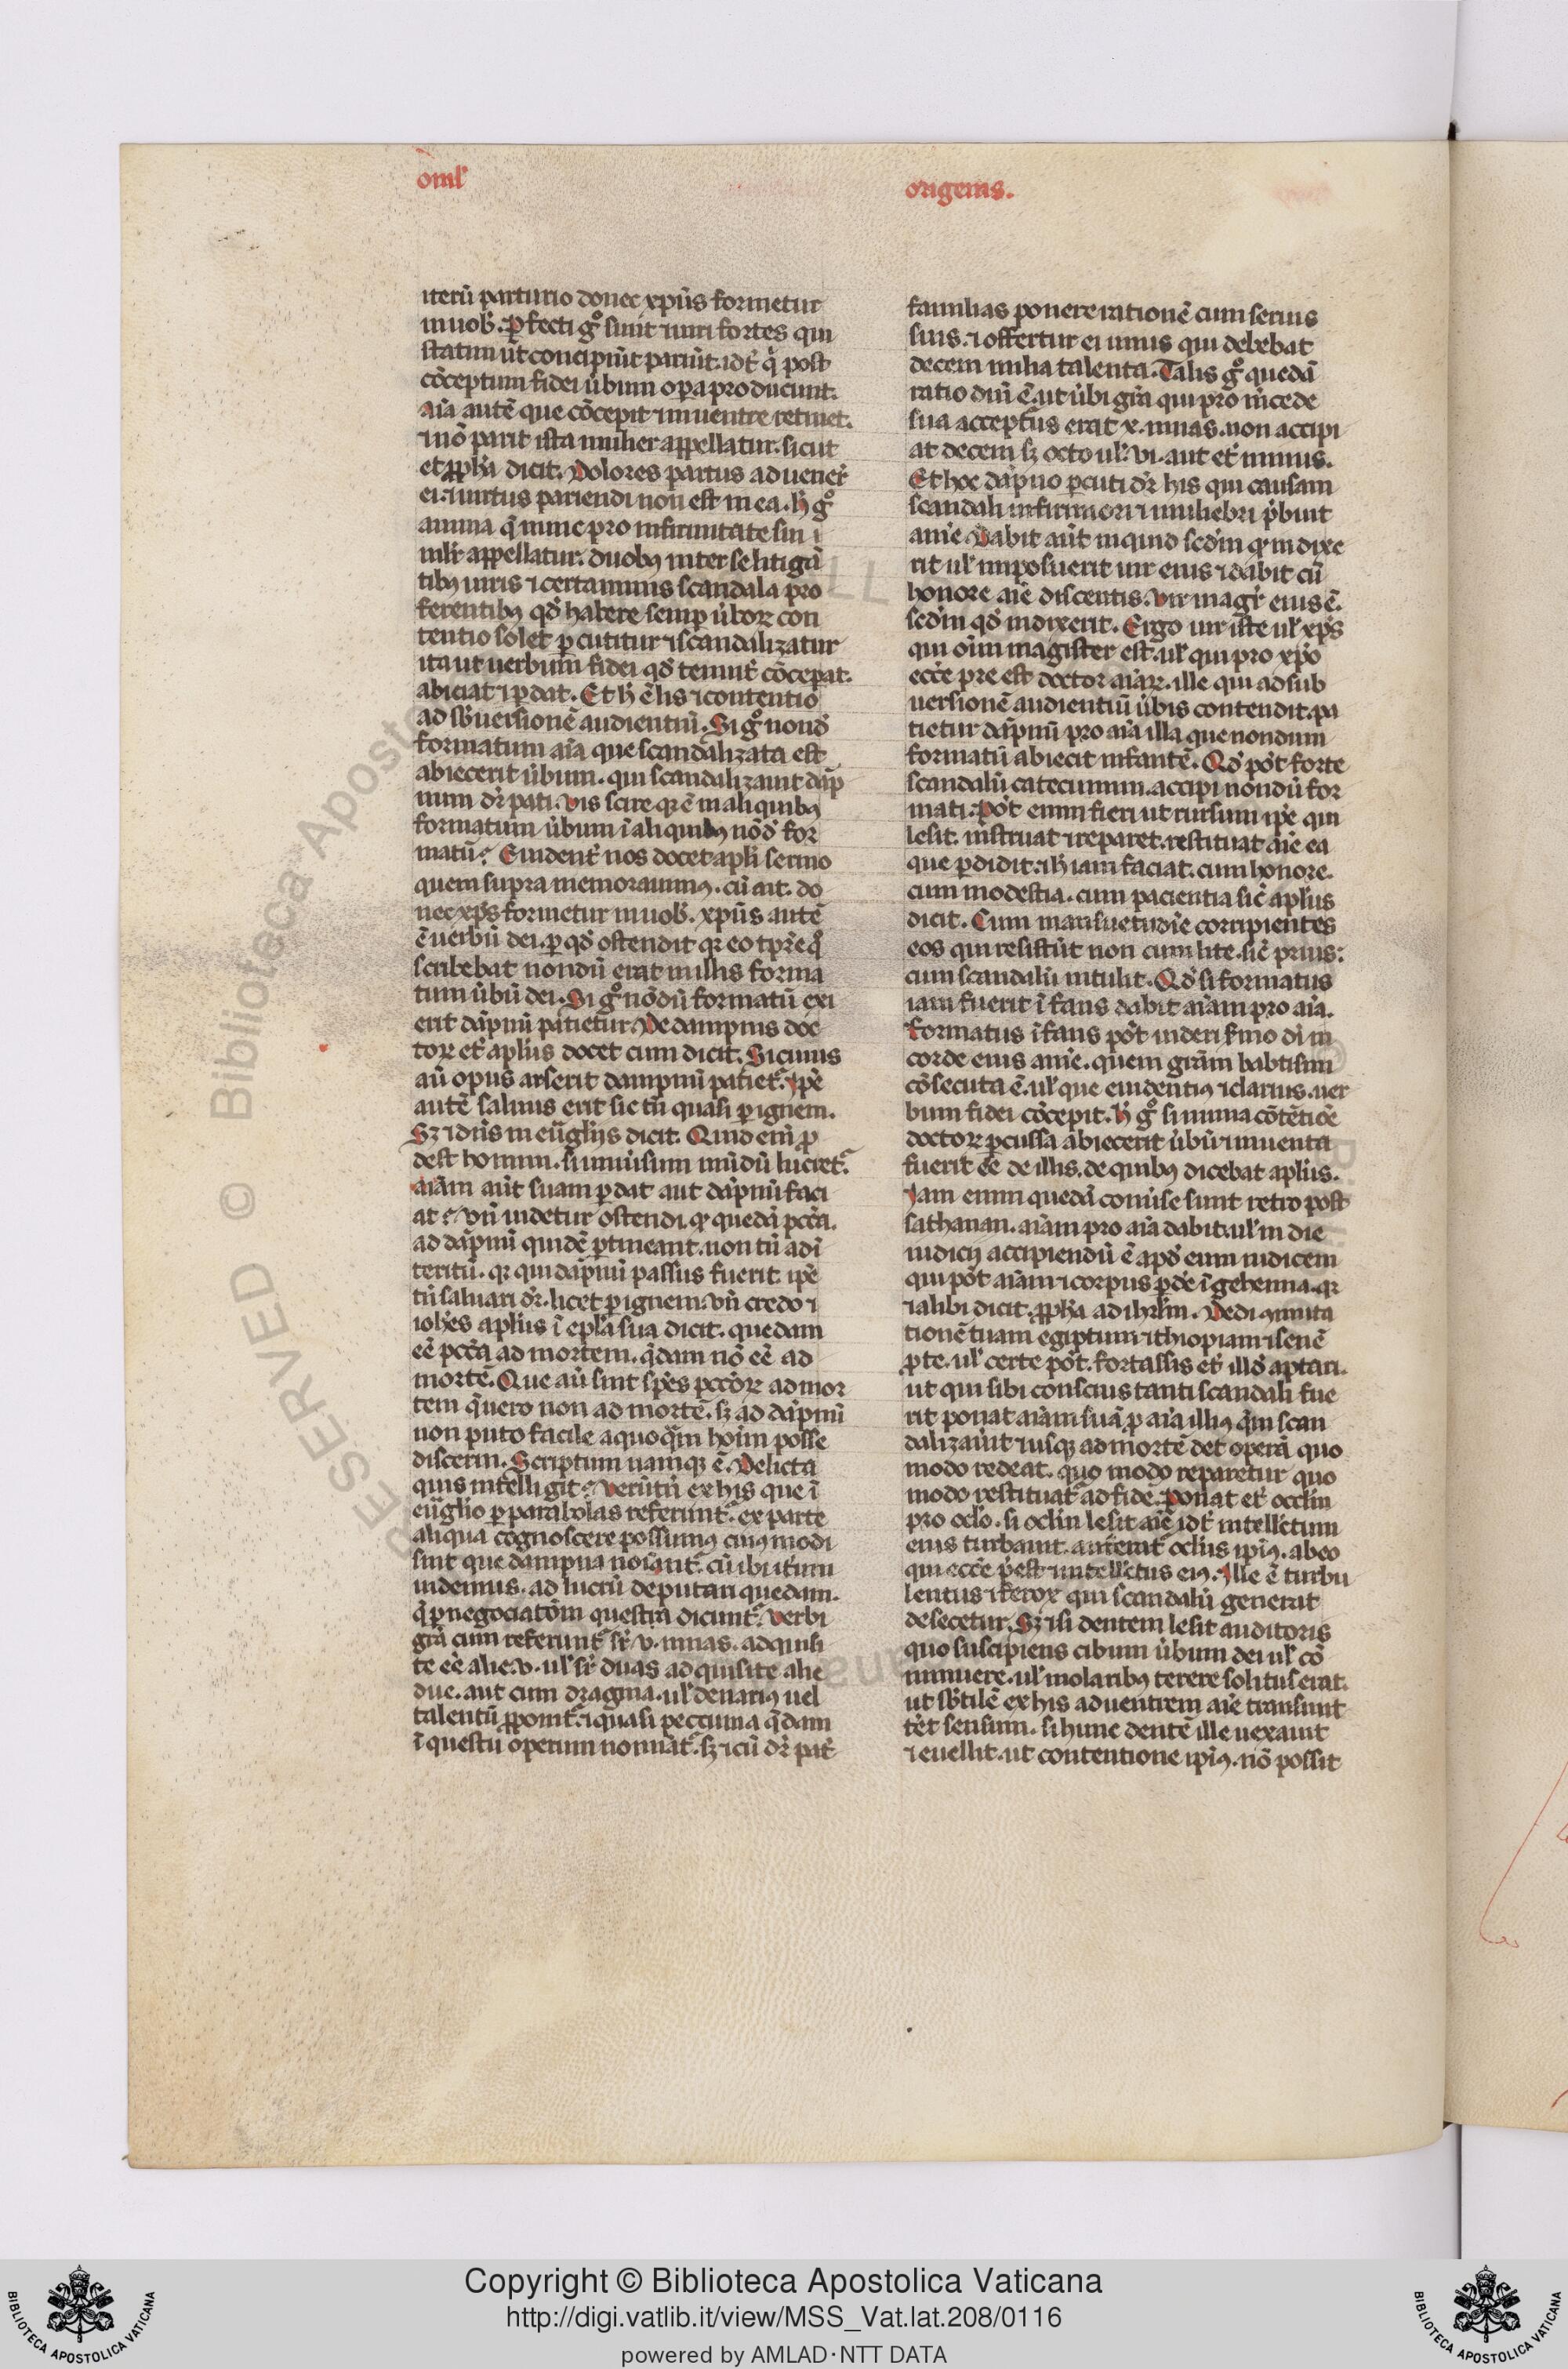 oml'
origenis.
iterū parturio donec xpūs formetur
in uob'. ꝑfecti gͦ sunt ⁊ uiri fortes qui
statim ut concipiūt pariūt. id ē q̇ post
cōceptum fidei ůbum oꝑa producunt.
aīa autē que cōcepit ⁊ in uentre retinet.
⁊ nō parit ista mulier appellatur. sicut
et ꝓph̄a dicit. Dolores partus aduener̄
ei. ⁊ uirtus pariendi non est in ea. h̄ gͦ
anima q̄ nunc pro infirmitate sui
mlr̄ appellatur. duobꝯ inter se litigā
tibꝯ uiris ⁊ certaminis scandala pro
ferentibꝯ qd̄ habere semꝑ ůboꝝ con
tentio solet ꝑcutitur ⁊ scandalizatur
ita ut uerbum fidei qd̄ tenuit̄ cōceꝑat.
abiciat ⁊ ꝑdat. Et h̄ ē lis ⁊ contentio
ad sb̄uersionē audientiū. Si gͦ nond̄
formatum aīa que scandalizata est
abiecerit ůbum. qui scandalizauit dāp
num dr̄ pati. Vis scire qꝛ ē in aliquibꝯ
formatum ůbum ī aliquibꝯ nōd̄ for
matū? Euident̄ nos docet apl̄i sermo
quem supra memorauimꝯ. cū ait. do
nec xp̄s formetur in uob'. xpūs autē
ē uerbū dei. ꝑ qd̄ ostendit qꝛ eo tp̄re qͦ
scribebat nondū erat in illis forma
tum ůbū dei. Si gͦ nōdū formatū exi
erit dāpnū patietur. De dampnis doc
toꝝ et̄ apl̄us docet cum dicit. Si cuius
aū opus arserit dampnū patiet᷑. Ip̄e
autē saluus erit sic tn̄ quasi ꝑ ignem.
Sꝫ ⁊ dn̄s in eūglijs dicit. Quid enī ꝓ
dest homini. si uniůsum mūdū lucret᷑.
aīam aūt suam ꝑdat aut dāpnū faci
at? Vn̄ uidetur ostendi. qꝛ quedā pcc̄a.
ad dāpnū quidē ꝑtineant. non tn̄ ad ī
teritū. qꝛ qui dāpnū passus fuerit. ip̄e
tn̄ saluari dr̄. licet ꝑ ignem. vn̄ credo ⁊
ioh̄es apl̄us ī epl̄a sua dicit. quedam
eē pcc̄a ad mortem. q̄dam nō eē ad
mortē. Que aū sint sp̄es pcc̄oꝝ ad mor
tem q̄ uero non ad mortē. sꝫ ad dāpnū
non puto facile a quoq̄m hoīm posse
discerni. Scriptum namqꝫ ē. Delicta
quis intelligit? Verūtn̄ ex his que ī
eūglio ꝑ parabolas referunt᷑. ex parte
aliqua cognoscere possumꝯ cuiꝯmodi
sint que dampna noīant᷑. cū ibi utimur
uidemus. ad lucrū deputari quedam.
q̄ ꝑ negociatōm questꝯ dicunt᷑. Verbi
gr̄a cum referunt᷑ sr̄ v. mnas. adquisi
te eē alie. v. ul' sr̄ duas adquisite alie
due. aut cum dragma. ul' denariꝯ uel
talentū ꝓponit᷑. ⁊ quasi peccunia q̄dam
ī questu operum nomināt᷑. sꝫ ⁊ cū dr̄ pat̄
familias ponere rationē cum seruis
suis. ⁊ offertur ei unus qui debebat
decem milia talenta. Talis gͦ quedā
ratio dn̄i ē. ut ůbi gr̄a qui pro m̄cede
sua accepturus erat x. mnas. non accipi
at decem sꝫ octo ul' vi. aut et̄ minus.
Et hoc dāpno ꝑcuti dr̄ his qui causam
scandali infirmiori ⁊ muliebri p̄buit
anīe. Dabit aūt inquid sed̄m qꝛ indixe
rit ul' imposuerit uir eius ⁊ dabit cū
honore aīe discentis. Vir magr̄ eius ē.
sed̄m qd̄ indixerit. Ergo uir iste ul' xp̄s
qui oīm magister est. ul' qui pro xp̄o
ecc̄e pre est doctor aīaꝝ. ille qui ad sub
uersionē audientiū ůbis contendit. pa
tietur dāpnū pro aīa illa que nondum
formatū abiecit infantē. Qd̄ pōt forte
scandalū catecuminī. accipi nondū for
mati. Pōt enim fieri ut rursum ip̄e qui
lesit. instruat ⁊ reparet. restituat aīe ea
que ꝑdidit. ⁊ h̄ iam faciat. cum honore.
cum modestia. cum pacientia sic̄ apl̄us
dicit. Cum mansuetudīe corripientes
eos qui resistūt non cum lite. sic̄ prius:
cum scandalū intulit. Qd̄ si formatus
iam fuerit īfans dabit aīam pro aīa.
Formatus īfans pōt uideri s̄mo dī in
corde eius anīe. quem gr̄am babtismi
cōsecuta ē. ul' que euidentiꝯ ⁊ clarius. uer
bum fidei cōcepit. h̄ gͦ si nimia cōtētiōe
doctoꝝ ꝑcussa abiecerit ůbū ⁊ inuenta
fuerit eē de illis. de quibꝯ dicebat apl̄us.
Iam enim quedā conůse sunt retro post
sathanan. aīam pro aīa dabit. ul' in die
iudicij accipiendū ē apd̄ eum iudicem
qui pōt aīam ⁊ corpus ꝑdē ī gehenna. qꝛ
⁊ alibi dicit. ꝓph̄a ad ihrl̄m. Dedi ꝯmuta
tionē tuam egiptum ⁊ ethiopiam ⁊ senē
ꝓ te. ul' certe pōt. fortassis et̄ illd̄ aptari.
ut qui sibi conscius tanti scandali fue
rit ponat aīam suā ꝓ aīa illiꝯ q̄m scan
dalizauit ⁊ usqꝫ ad mortē det operā quo
modo redeat. quo modo reparetur quo
modo restituat᷑ ad fidē. Ponat et̄ occlm̄
pro oclo. si oclm̄ lesit aīe id ē intell̄ctum
eius turbauit. auferat᷑ ocl̄us ipiꝯ. ab eo
qui ecc̄e p̄est ⁊ intellc̄tus eiꝯ. Ille ē turbu
lentus ⁊ ferox qui scandalū generat
desecetur. Sꝫ ⁊ si dentem lesit auditoris
quo suscipiens cibum ůbum dei ul' cō
minuere. ul' molaribꝯ terere solitus erat.
ut sb̄tilē ex his ad uentrem aīe transmit
tēt sensum. si hunc dentē ille uexauit
⁊ euellit. ut contentione ipiꝯ. nō possit
Copyright © Biblioteca Apostolica Vaticana
http://digi.vatlib.it/view/MSS_Vat.lat.208/0116
powered by AMLAD·NTT DATA
BIBLIOTECA APOSTOLICA VATICANA
BIBLIOTECA APOSTOLICA VATICANA